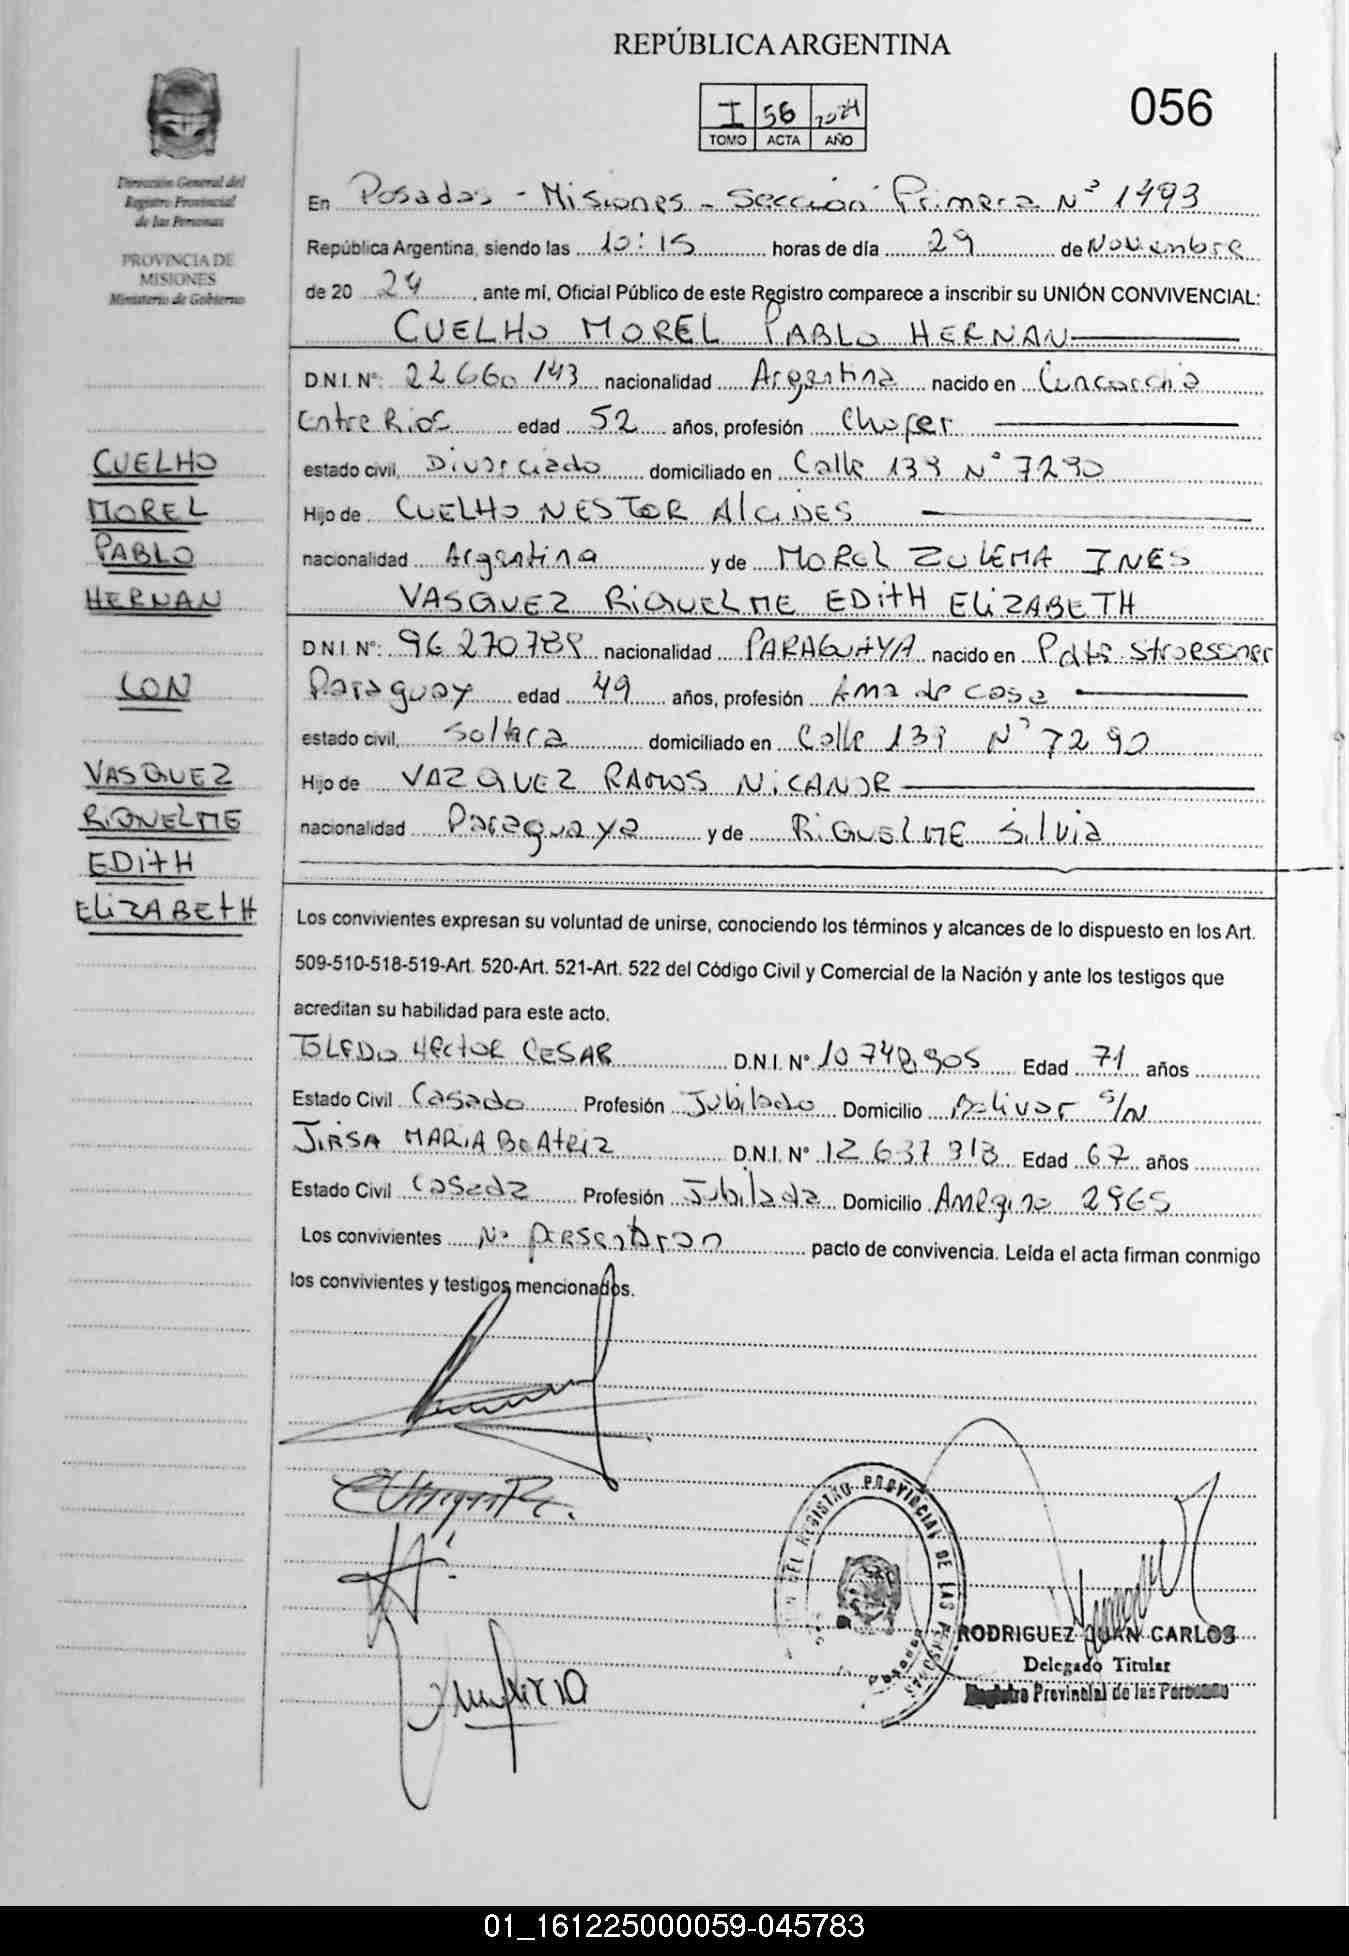 REPÚBLICA ARGENTINA
I 56 2024
TOMO ACTA AÑO
056
Dirección General del
Registro Provincial
de las Personas
PROVINCIA DE
MISIONES
Ministerio de Gobierno
En Posadas - Misiones - Sección Primera Nº 1493
República Argentina, siendo las 10:15 horas de día 29 de Noviembre
de 20 24, ante mí, Oficial Público de este Registro comparece a inscribir su UNIÓN CONVIVENCIAL:
CUELHO MOREL PABLO HERNAN
D.N.I. Nº: 22.660.143 nacionalidad Argentina nacido en Concordia
Entre Rios edad 52 años, profesión Chofer
estado civil, Divorciado domiciliado en Calle 139 Nº 7290
Hijo de CUELHO NESTOR AlciDES
nacionalidad Argentina y de MOREL ZULEMA INES
VASQUEZ RIQUELME EDitH ELiZABETH
D.N.I. Nº: 96.270.789 nacionalidad PARAGUAYA nacido en Pdte Stroessner
Paraguay edad 49 años, profesión Ama de casa
estado civil, Soltera domiciliado en Calle 139 Nº 7290
Hijo de VAZQUEZ RAMOS NiCANOR
nacionalidad Paraguaya y de RiQUELME Silvia
CUELHO
MOREL
PABLO
HERNAN
CON
VASQUEZ
RIQUELME
EDitH
ELiZABEtH
Los convivientes expresan su voluntad de unirse, conociendo los términos y alcances de lo dispuesto en los Art.
509-510-518-519-Art. 520-Art. 521-Art. 522 del Código Civil y Comercial de la Nación y ante los testigos que
acreditan su habilidad para este acto.
TOLEDO HECtOR CESAR D.N.I. Nº 10.748.905 Edad 71 años
Estado Civil Casado Profesión Jubilado Domicilio Bolivar S/N
JIRSA MARiA BEAtriz D.N.I. Nº 12.637.913 Edad 67 años
Estado Civil Casada Profesión Jubilada Domicilio Ameghino 2965
Los convivientes No presentaron pacto de convivencia. Leída el acta firman conmigo
los convivientes y testigos mencionados.
DEL REGISTRO PROVINCIAL DE LAS
RODRIGUEZ JUAN CARLOS
Delegado Titular
Registro Provincial de las Personas
01_161225000059-045783